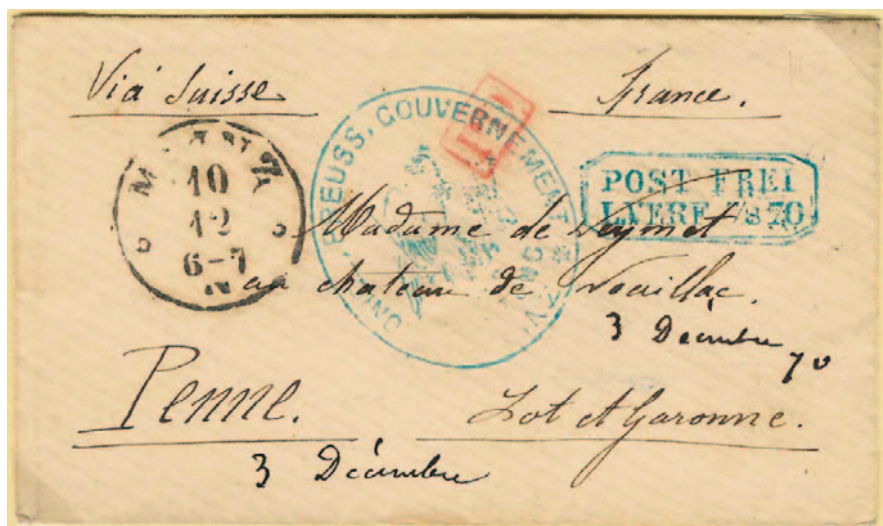 Via Suisse
France.
10
12
6-7
PREUSS. GOUVERNEMENT
PD
POST FREI
Madame de
au chateau de
3 Décembre
70
Penne.
Lot et Garonne.
3 Décembre